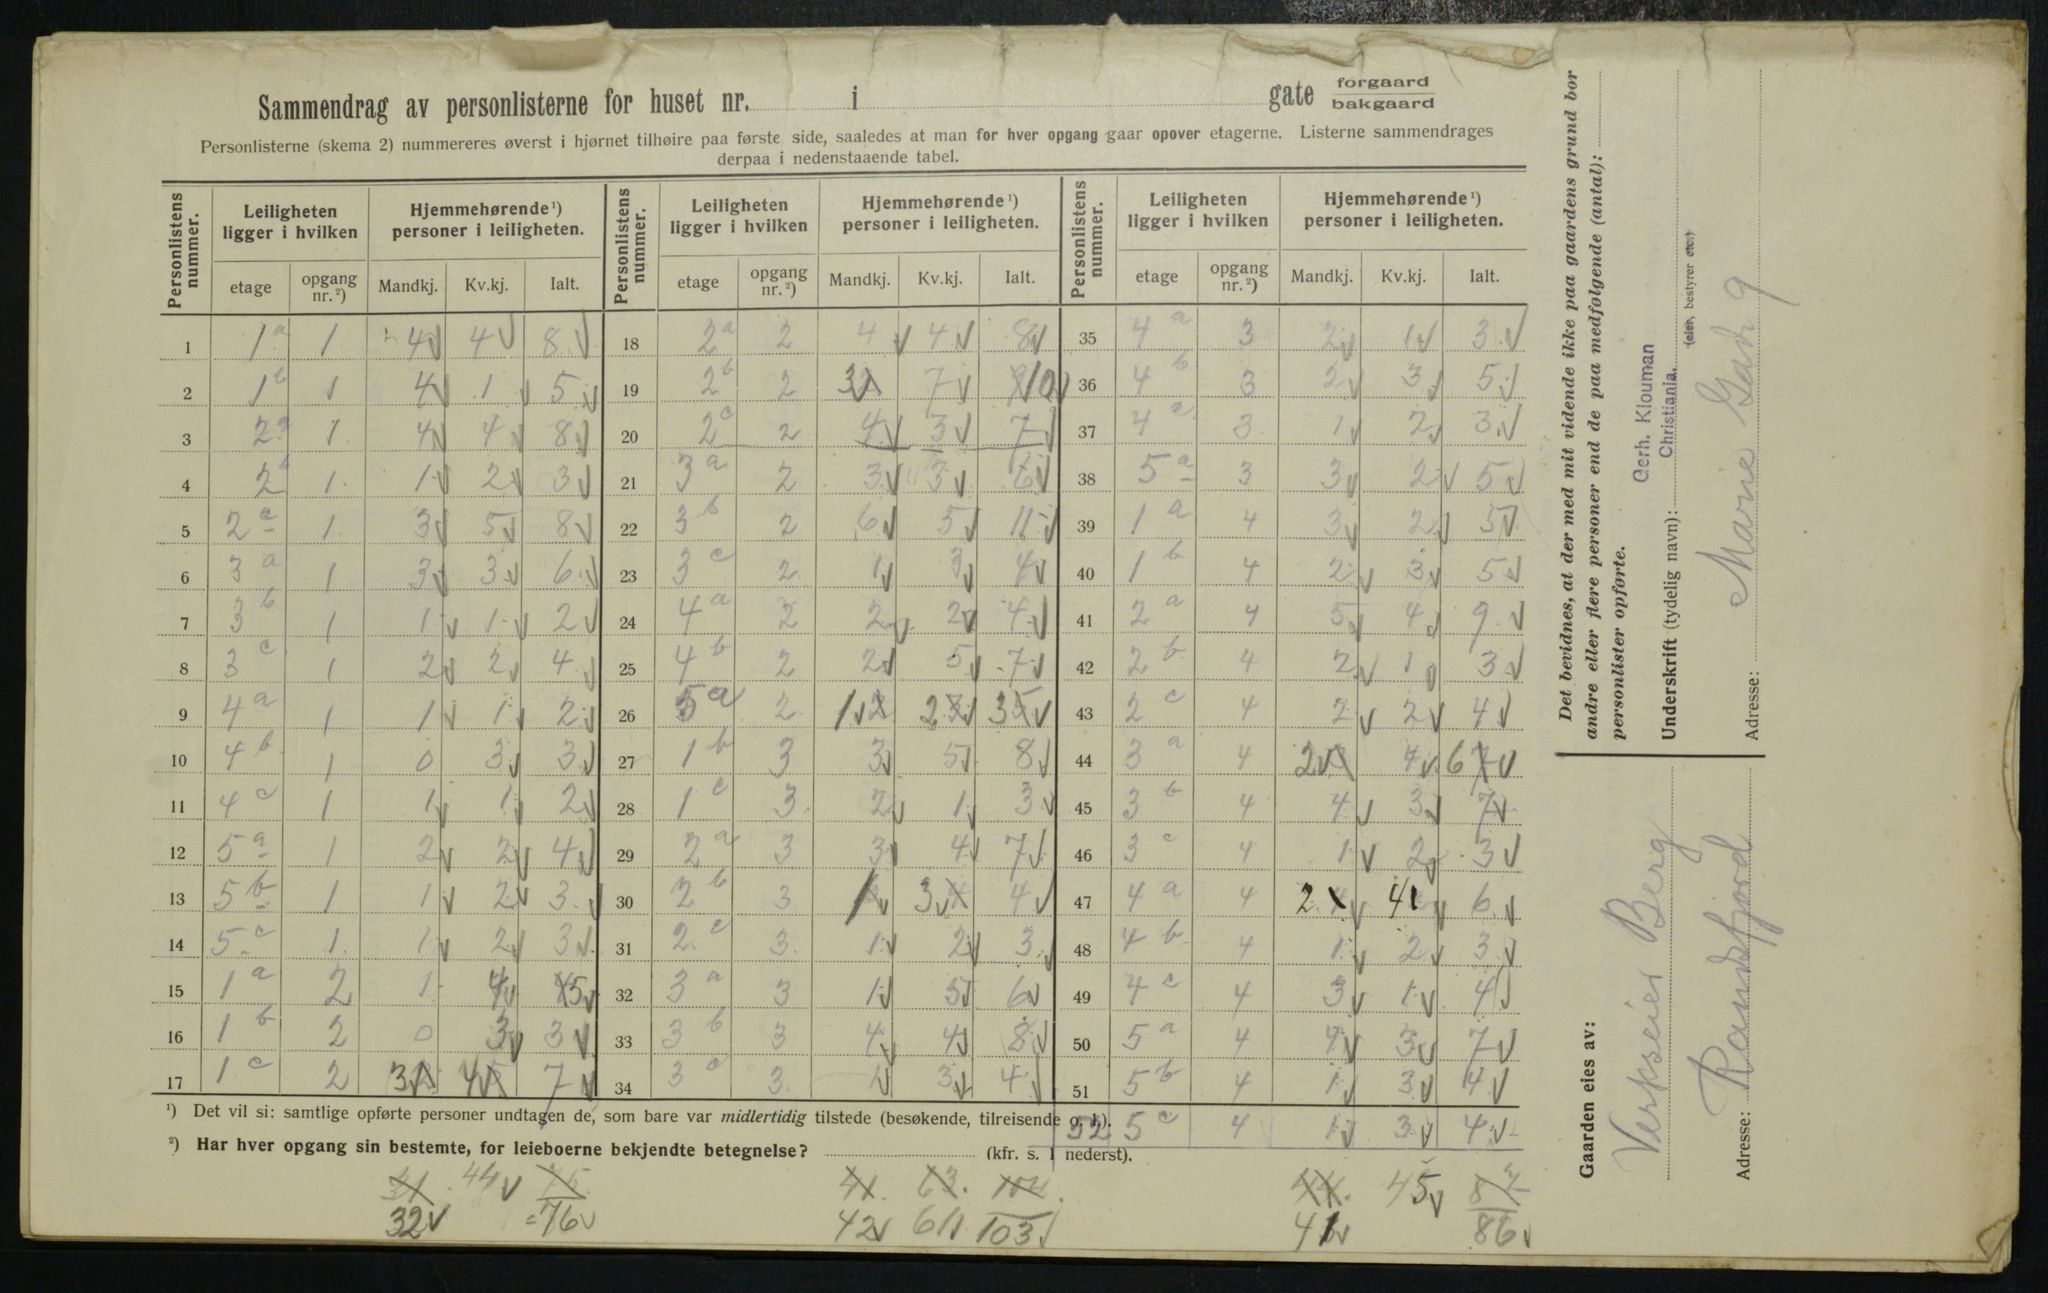 Sammendrag av personlisterne for huset nr. i gate forgaard
bakgaard
Personlisterne (skema 2) nummereres øverst i hjørnet tilhøire paa første side, saaledes at man for hver opgang gaar opover etagerne. Listerne sammendrages
derpaa i nedenstaaende tabel.
Personlistens nummer. Leiligheten ligger i hvilken Hjemmehørende ¹) personer i leiligheten. Personlistens nummer. Leiligheten ligger i hvilken Hjemmehørende ¹) personer i leiligheten. Personlistens nummer. Leiligheten ligger i hvilken Hjemmehørende ¹) personer i leiligheten.
etage opgang nr. ²) Mandkj. Kv.kj. Ialt. etage opgang nr. ²) Mandkj. Kv.kj. Ialt. etage opgang nr. ²) Mandkj. Kv.kj. Ialt.
1 1a 1 4 4 8 18 2a 2 4 4 8 35 4a 3 2 1 3
2 1b 1 4 1 5 19 2b 2 3 7 10 36 4b 3 2 3 5
3 2a 1 4 4 8 20 2c 2 4 3 7 37 4c 3 1 2 3
4 2b 1 1 2 3 21 3a 2 3 3 6 38 5a 3 3 2 5
5 2c 1 3 5 8 22 3b 2 6 5 11 39 1a 4 3 2 5
6 3a 1 3 3 6 23 3c 2 1 3 4 40 1b 4 2 3 5
7 3b 1 1 1 2 24 4a 2 2 2 4 41 2a 4 5 4 9
8 3c 1 2 2 4 25 4b 2 2 5 7 42 2b 4 2 1 3
9 4a 1 1 1 2 26 5a 2 1 2 3 43 2c 4 2 2 4
10 4b 1 0 3 3 27 1b 3 3 5 8 44 3a 4 2 4 6
11 4c 1 1 1 2 28 1c 3 2 1 3 45 3b 4 4 3 7
12 5a 1 2 2 4 29 2a 3 3 4 7 46 3c 4 1 2 3
13 5b 1 1 2 3 30 2b 3 1 3 4 47 4a 4 2 4 6
14 5c 1 1 2 3 31 2c 3 1 2 3 48 4b 4 1 2 3
15 1a 2 1 4 5 32 3a 3 1 5 6 49 4c 4 3 1 4
16 1b 2 0 3 3 33 3b 3 4 4 8 50 5a 4 4 3 7
17 1c 2 3 4 7 34 3c 3 1 3 4 51 5b 4 1 3 4
¹) Det vil si: samtlige opførte personer undtagen de, som bare var midlertidig tilstede (besøkende, tilreisende o. l.).
52 5c 4 1 3 4
²) Har hver opgang sin bestemte, for leieboerne bekjendte betegnelse? (kfr. s. 1 nederst).
31 44 75 41 63 104 44 45
32 =76 42 61 103 41 86
Det bevidnes, at der med mit vidende ikke paa gaardens grund bor
andre eller flere personer end de paa medfølgende (antal):
personlister opførte.
Gerh. Klouman
Christiania.
Underskrift (tydelig navn):
(eier, bestyrer etc.)
Marie Gade 9
Adresse:
Gaarden eies av:
Verkseier Berg
Randsfjord
Adresse: